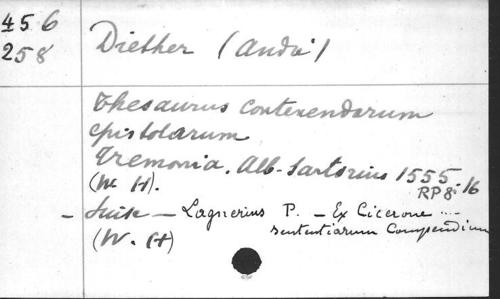 456
258
Diether (André)
Thesaurus contexendarum
epistolarum
Tremonia. Alb. Sartorius 1555
(W H).
RP 8-16
- Suite - Lagnerius P. - Ex Cicerone ....
sententiarum Compendium
(W. H)